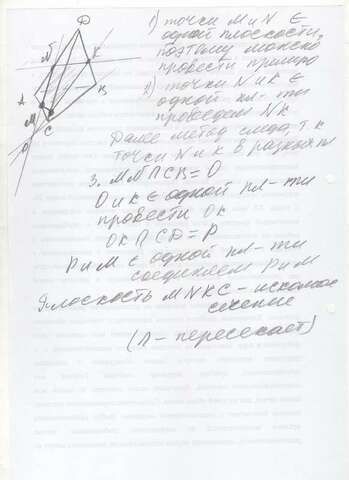 D
1) точки M и N ∈
одной плоскости,
поэтому можно
провести прямую
N
K
2) точки N и K ∈
одной пл-ти
проведем NK
A
B
M
C
O
Далее метод следа, т к
точки N и K в разных пл
3. MN∩CB=O
O и K ∈ одной пл-ти
провести OK
OK∩CD=P
P и M ∈ одной пл-ти
соединяем P и M
Плоскость MNKC - искомое
сечение
(∩ - пересекает)